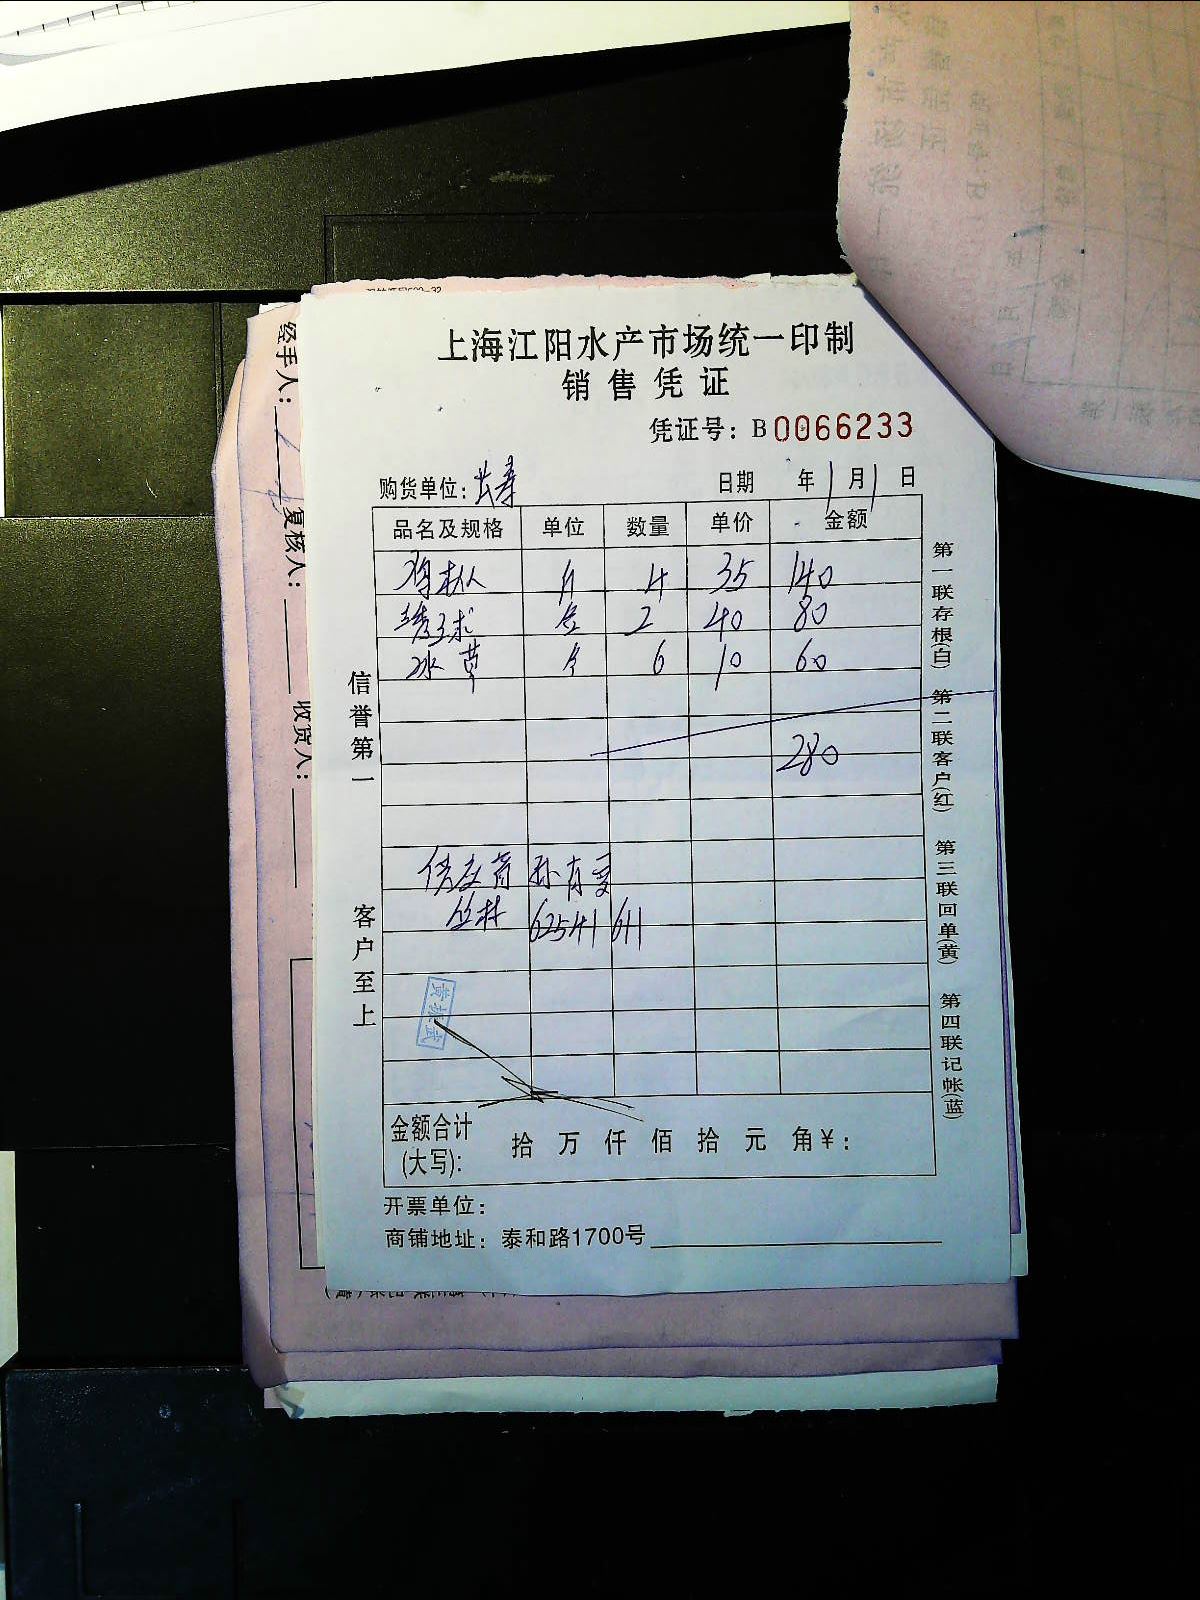 上海江阳水产市场统一印制
销售凭证
凭证号：B0066233
购货单位：长寿 日期 年1月1日
品名及规格 单位 数量 单价 金额
鸡枞 斤 4 35 140
绣球 盒 2 40 80
冰草 斤 6 10 60
280
供应商 孙有
丛林 62541 611
黄振武
金额合计
(大写): 拾万仟佰拾元角￥:
开票单位：
商铺地址：泰和路1700号
信誉第一
客户至上
第一联存根(白)
第二联客户(红)
第三联回单(黄)
第四联记帐(蓝)
经手人：
复核人：
收货人：